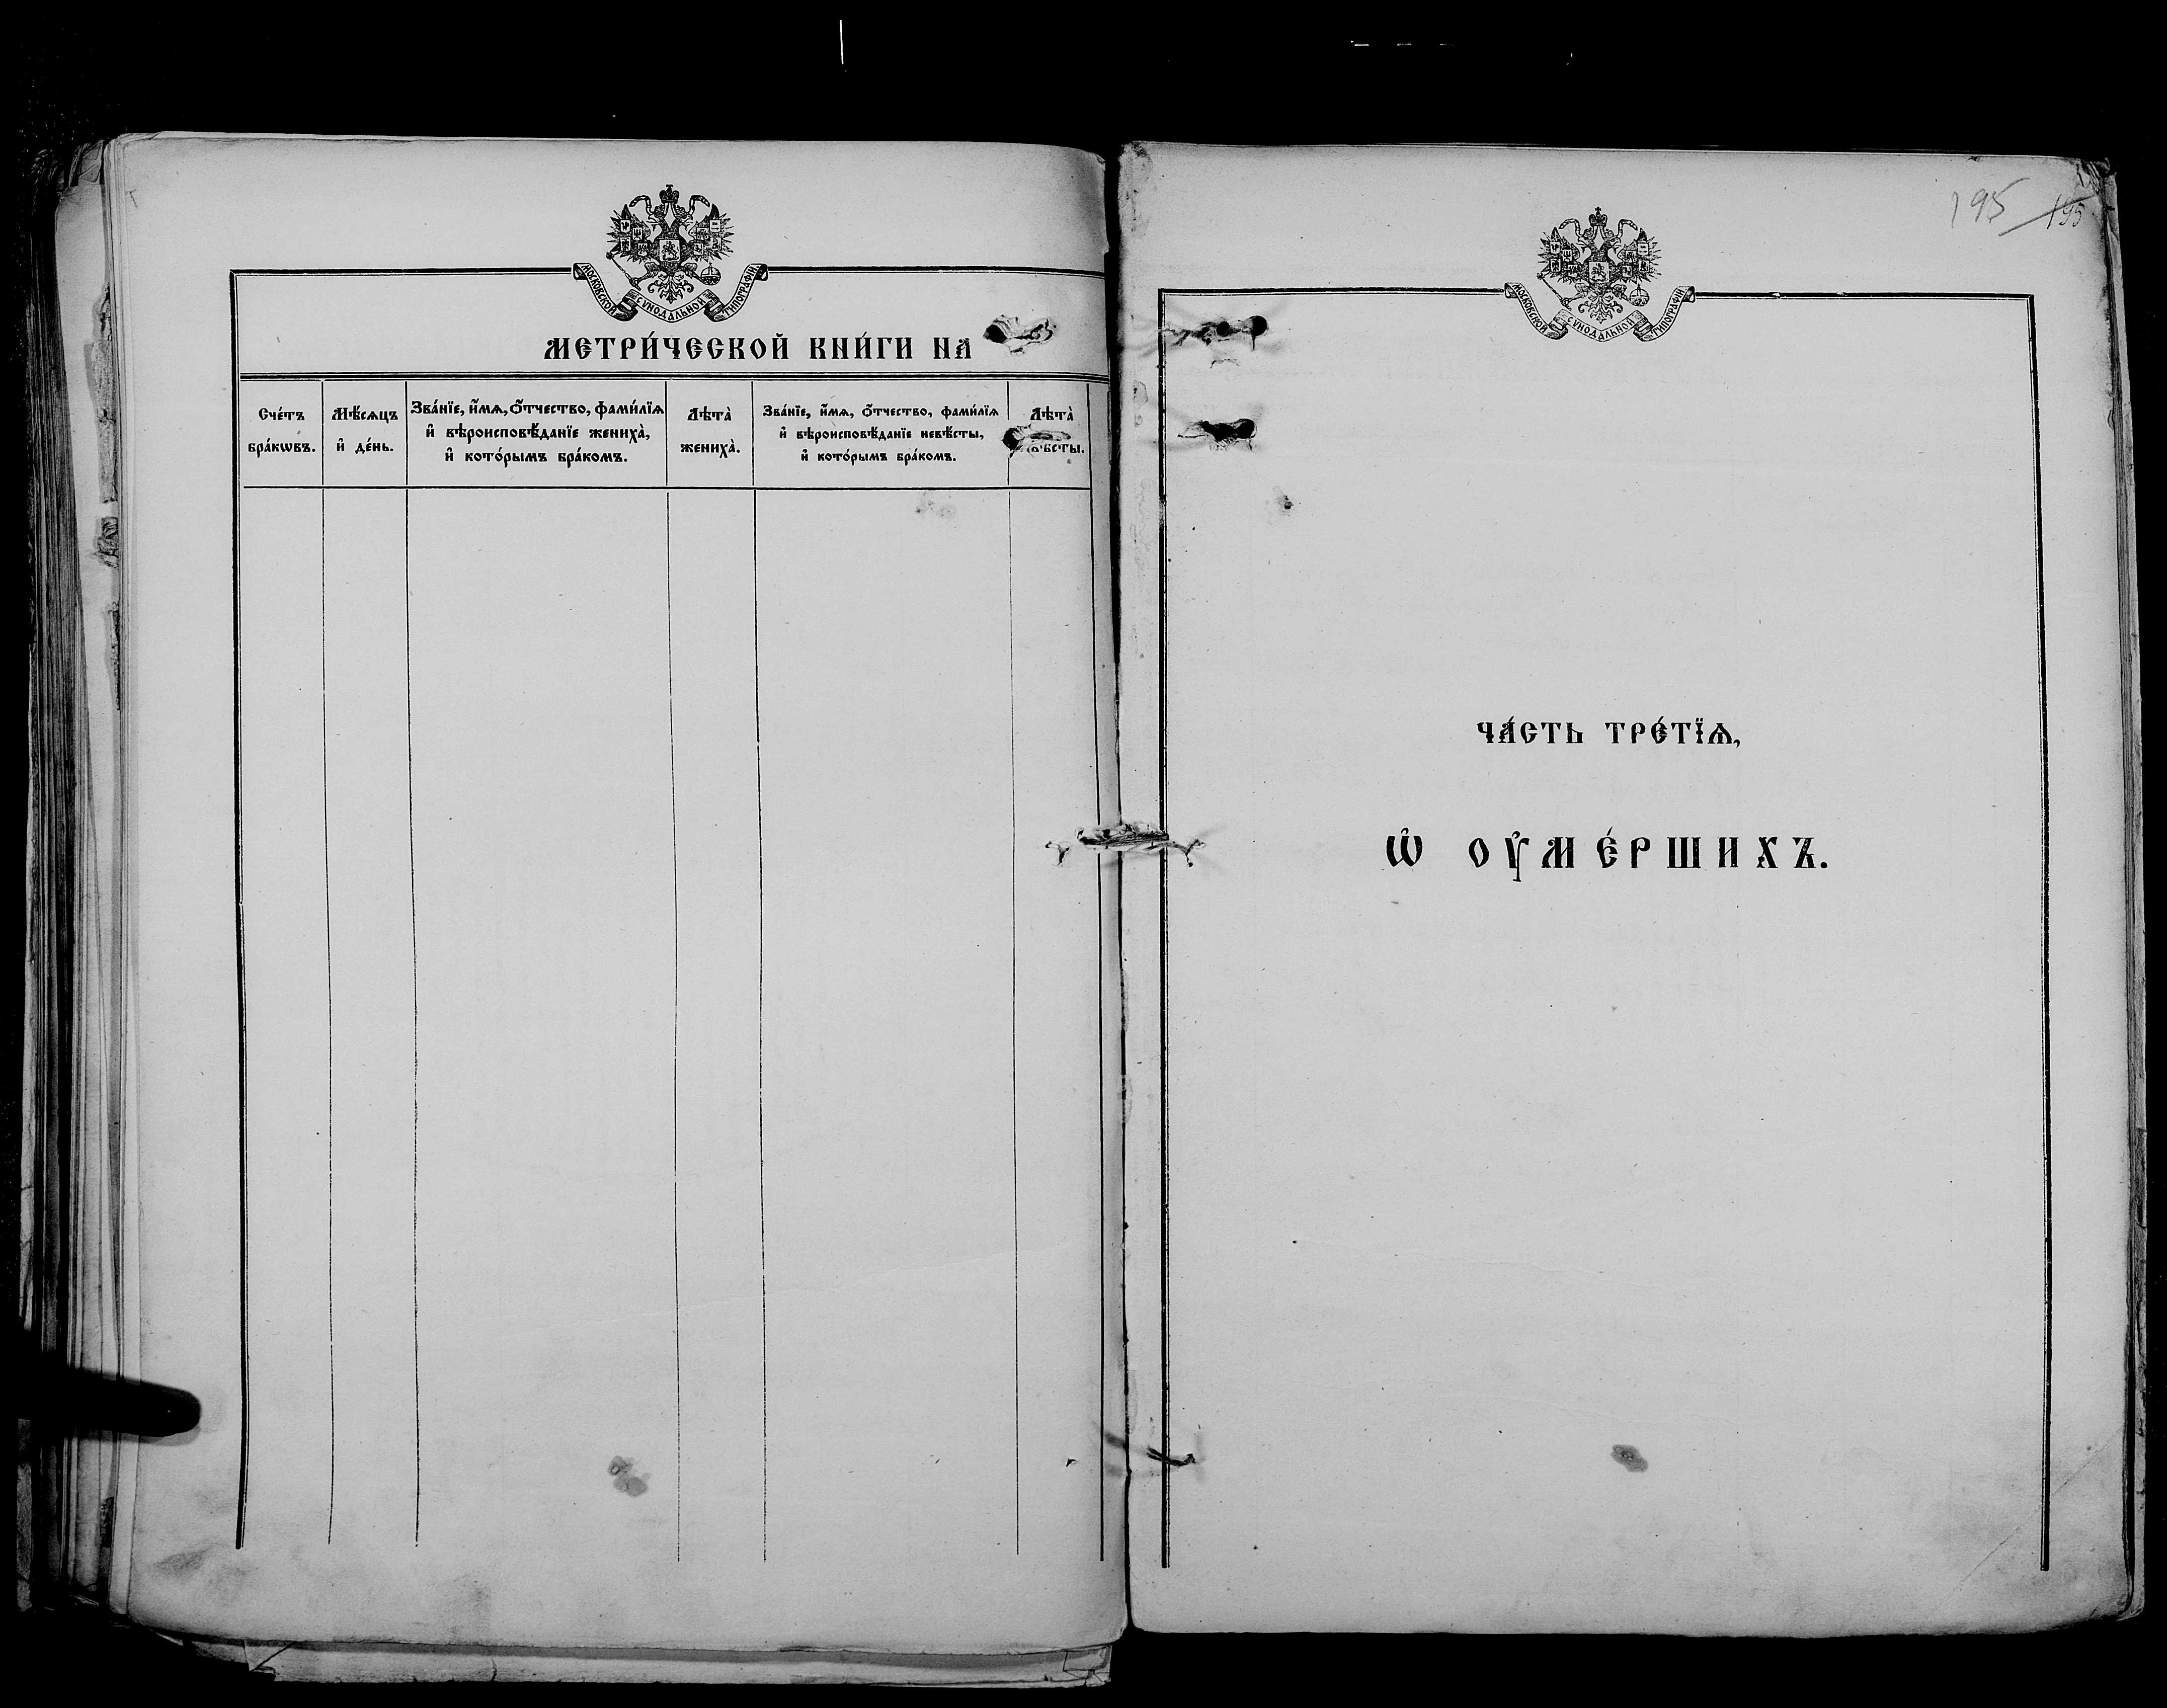 МОСКОВСКОЙ СѴНОДАЛЬНОЙ ТИПОГРАФІИ
МЕТРИ́ЧЕСКОЙ КНИ́ГИ НА
Сче́тъ бра́кѡвъ.
Мѣ́сѧцъ и҆ де́нь.
Зва́нїе, и҆́мѧ, ѻ҆́тчество, фами́лїѧ
и҆ вѣроисповѣ́данїе жениха̀,
и҆ кото́рымъ бра́комъ.
Лѣта̀ жениха̀.
Зва́нїе, и҆́мѧ, ѻ҆́тчество, фами́лїѧ
и҆ вѣроисповѣ́данїе невѣ́сты,
и҆ кото́рымъ бра́комъ.
Лѣта̀
195 195
МОСКОВСКОЙ СѴНОДАЛЬНОЙ ТИПОГРАФІИ
ЧА́СТЬ ТРЕ́ТЇѦ,
Ѡ҆ ОУ҆МЕ́РШИХЪ.